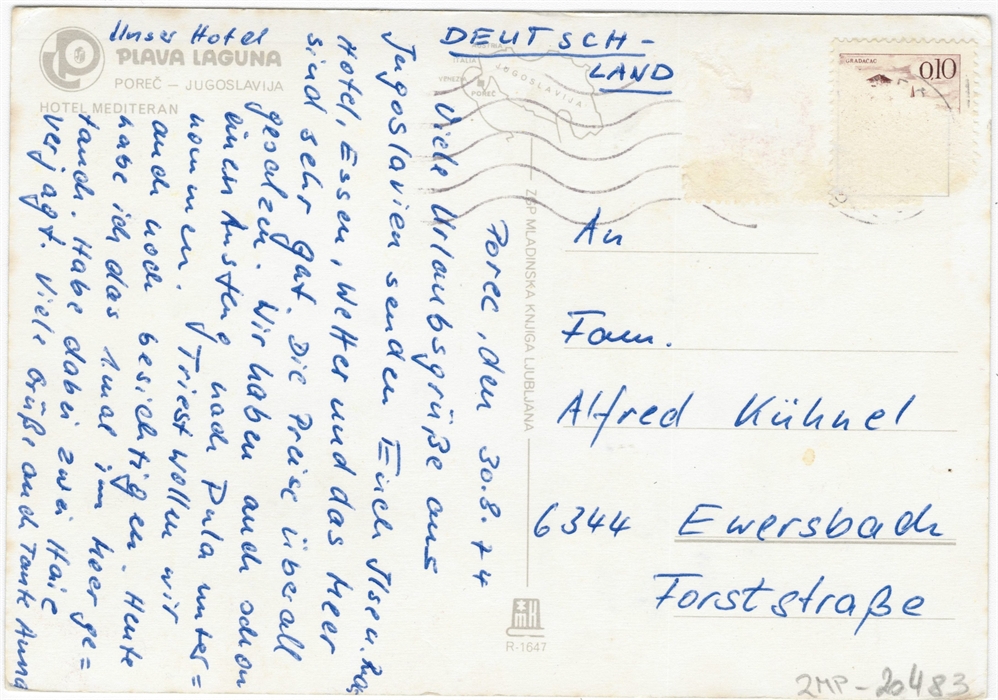 Unser Hotel
PLAVA LAGUNA
POREČ – JUGOSLAVIJA
HOTEL MEDITERAN
Porec, den 30.8.74
Viele Urlaubsgrüße aus
Jugoslavien senden Euch Ilse u.
Hotel, Essen, Wetter und das Meer
sind sehr gut. Die Preise überall
gesalzen. Wir haben auch schon
einen Ausflug nach Pula unter=
nommen. Triest wollen wir
auch noch besichtigen. Heute
habe ich das 1.mal im Meer ge=
taucht. Habe dabei zwei Haie
verjagt. Viele Grüße auch Tante Anna
DEUTSCH-
LAND
ITALIA
VENEZIA
POREČ
JUGOSLAVIJA
GRADAČAC
0,10
ZGP MLADINSKA KNJIGA LJUBLJANA
An
Fam.
Alfred Kühnel
6344 Ewersbach
Forststraße
mk
R-1647
2MP-20483